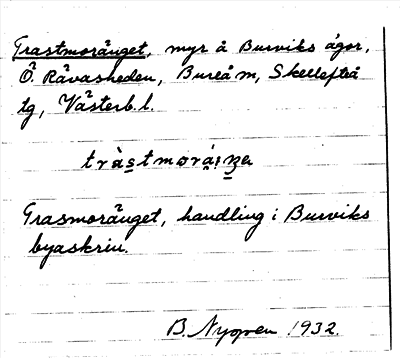 Trastmoränget, myr å Burviks ägor,
Ö. Råvasheden, Bureå m, Skellefteå
tg, Västerb. l.
Trasmoränget, handling i Burviks
byaskrin.
B. Nygren 1932.